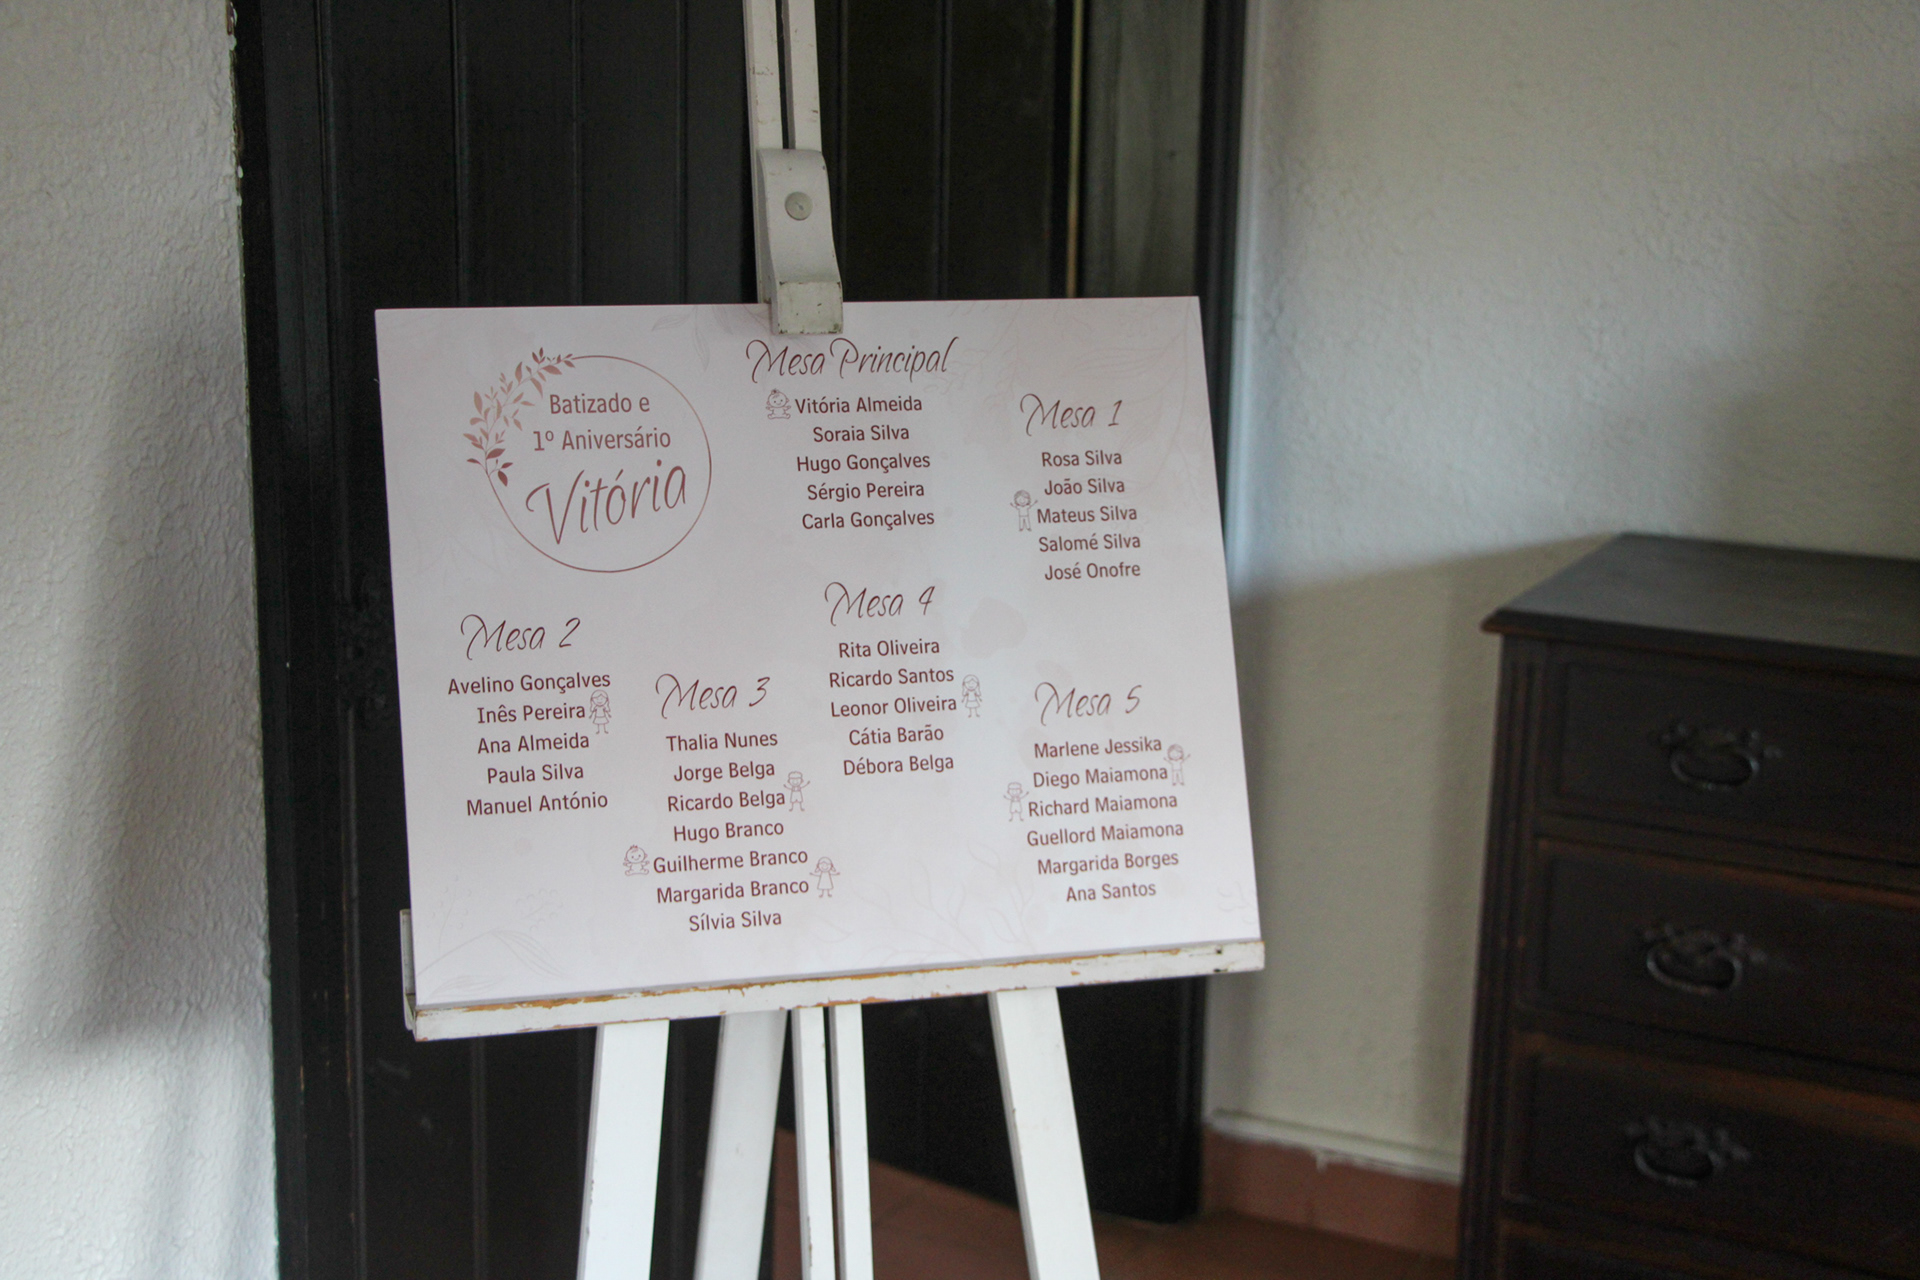 Batizado e
1º Aniversário
Vitória
Mesa Principal
Vitória Almeida
Soraia Silva
Hugo Gonçalves
Sérgio Pereira
Carla Gonçalves
Mesa 1
Rosa Silva
João Silva
Mateus Silva
Salomé Silva
José Onofre
Mesa 2
Avelino Gonçalves
Inês Pereira
Ana Almeida
Paula Silva
Manuel António
Mesa 3
Thalia Nunes
Jorge Belga
Ricardo Belga
Hugo Branco
Guilherme Branco
Margarida Branco
Sílvia Silva
Mesa 4
Rita Oliveira
Ricardo Santos
Leonor Oliveira
Cátia Barão
Débora Belga
Mesa 5
Marlene Jessika
Diego Maiamona
Richard Maiamona
Guellord Maiamona
Margarida Borges
Ana Santos